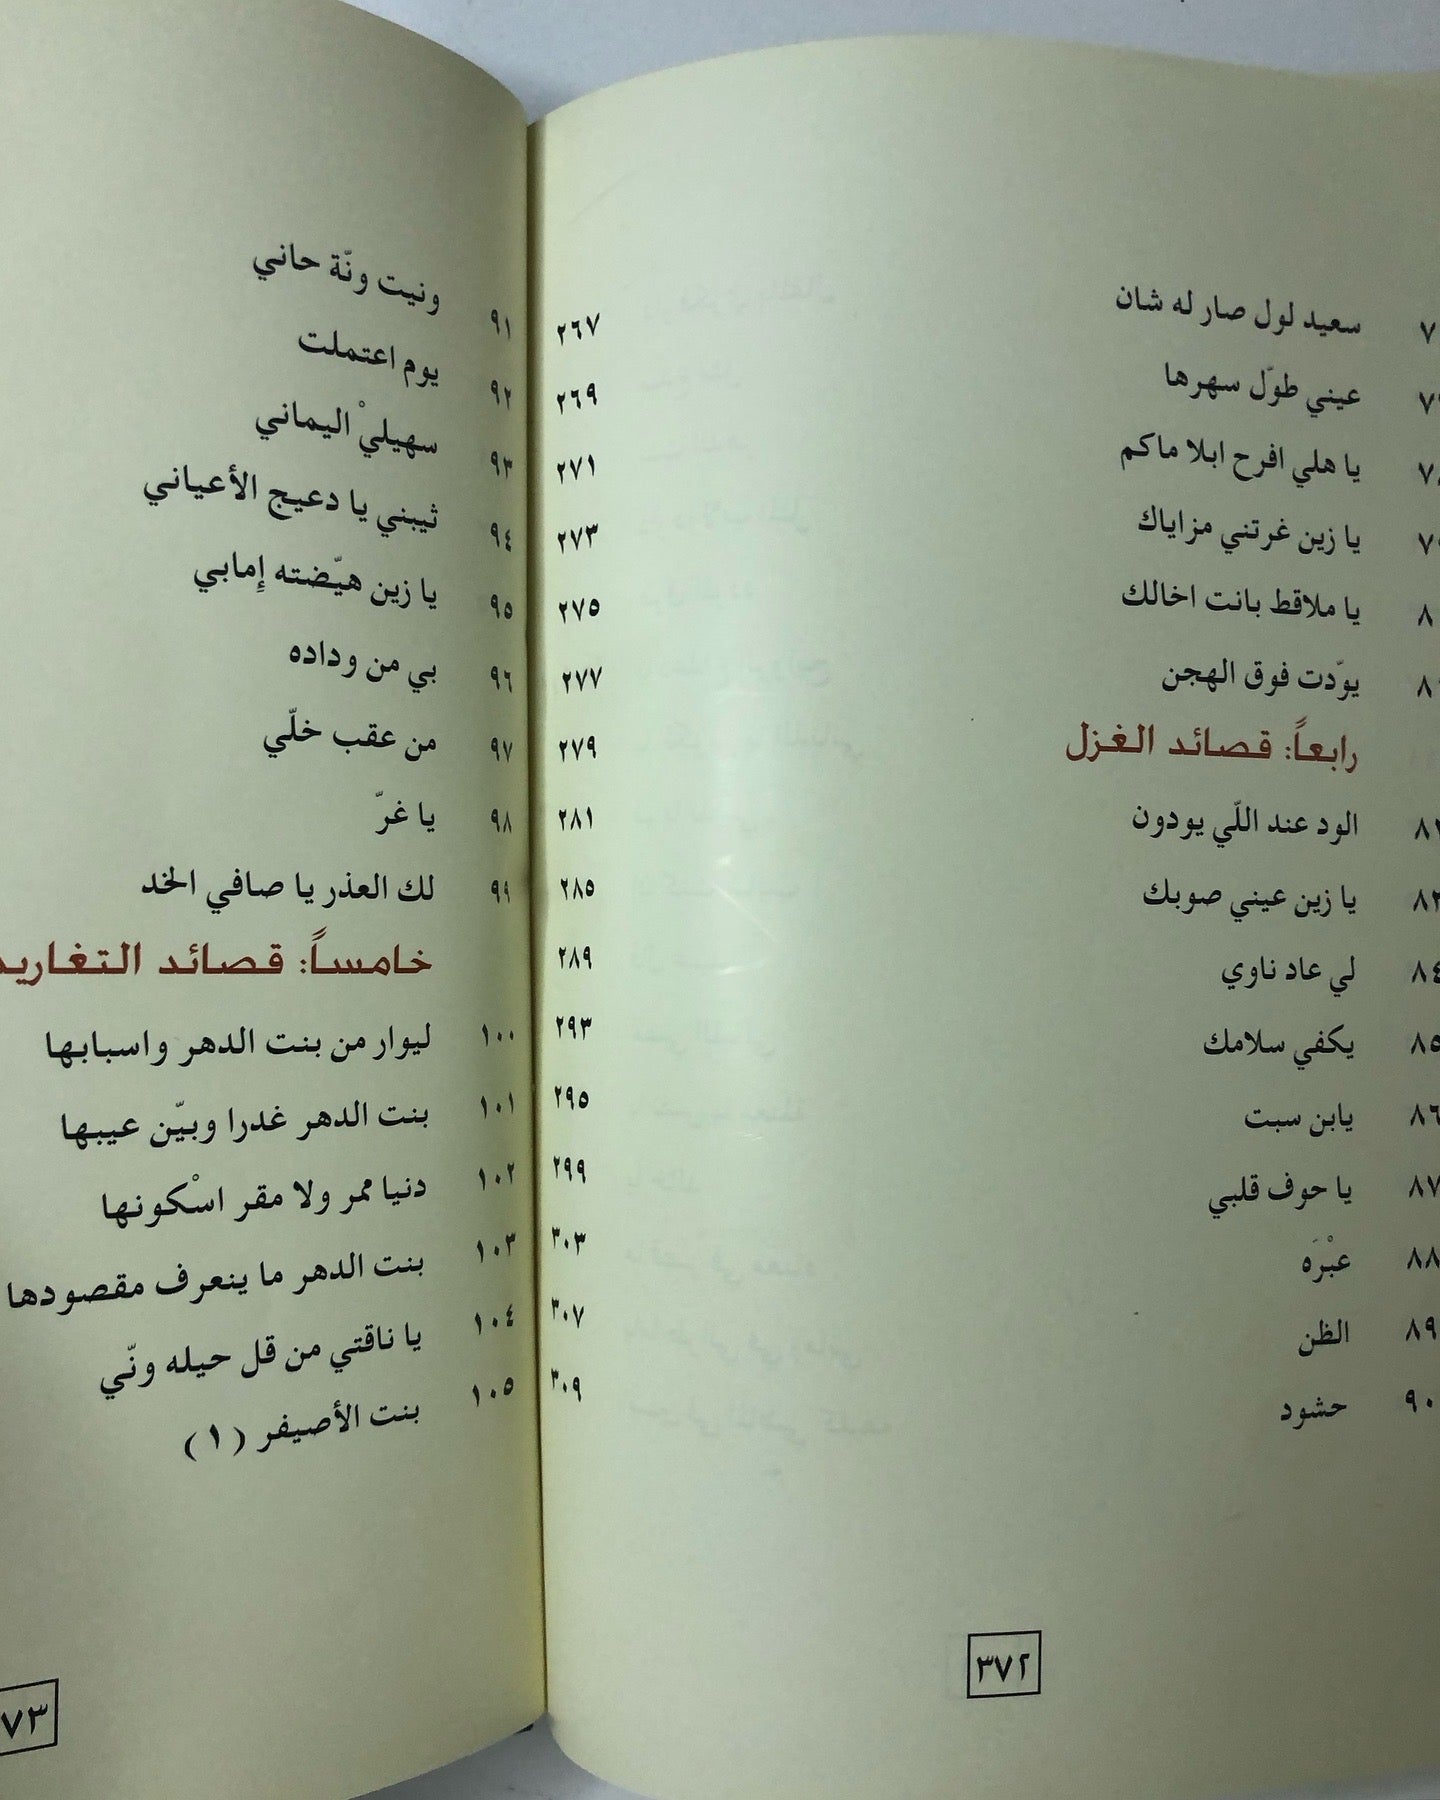 سعيد لول صار له شان ٢٦٧
عيني طوّل سهرها ٢٦٩
٧٨ يا هلي افرح ابلا ماكم ٢٧١
٧٩ يا زين غرتني مزاياك ٢٧٣
يا ملاقط بانت اخالك ٢٧٥
يوّدت فوق الهجن ٢٧٧
رابعاً: قصائد الغزل ٢٧٩
الود عند اللّي يودون ٢٨١
٨٣ يا زين عيني صوبك ٢٨٥
٨٤ لي عاد ناوي ٢٨٩
٨٥ يكفي سلامك ٢٩٣
٨٦ يابن سبت ٢٩٥
٨٧ يا حوف قلبي ٢٩٩
٨٨ عبْرَه ٣٠٣
٨٩ الظن ٣٠٧
٩٠ حشود ٣٠٩
٣٧٢
٩١ ونيت ونّة حاني
٩٢ يوم اعتملت
٩٣ سهيليْ اليماني
٩٤ ثيبني يا دعيج الأعياني
٩٥ يا زين هيّضته إمابي
٩٦ بي من وداده
٩٧ من عقب خلّي
٩٨ يا غرّ
٩٩ لك العذر يا صافي الخد
خامساً: قصائد التغاريد
١٠٠ ليوار من بنت الدهر واسبابها
١٠١ بنت الدهر غدرا وبيّن عيبها
١٠٢ دنيا ممر ولا مقر اسْكونها
١٠٣ بنت الدهر ما ينعرف مقصودها
١٠٤ يا ناقتي من قل حيله ونّي
١٠٥ بنت الأصيفر (١)
٧٣